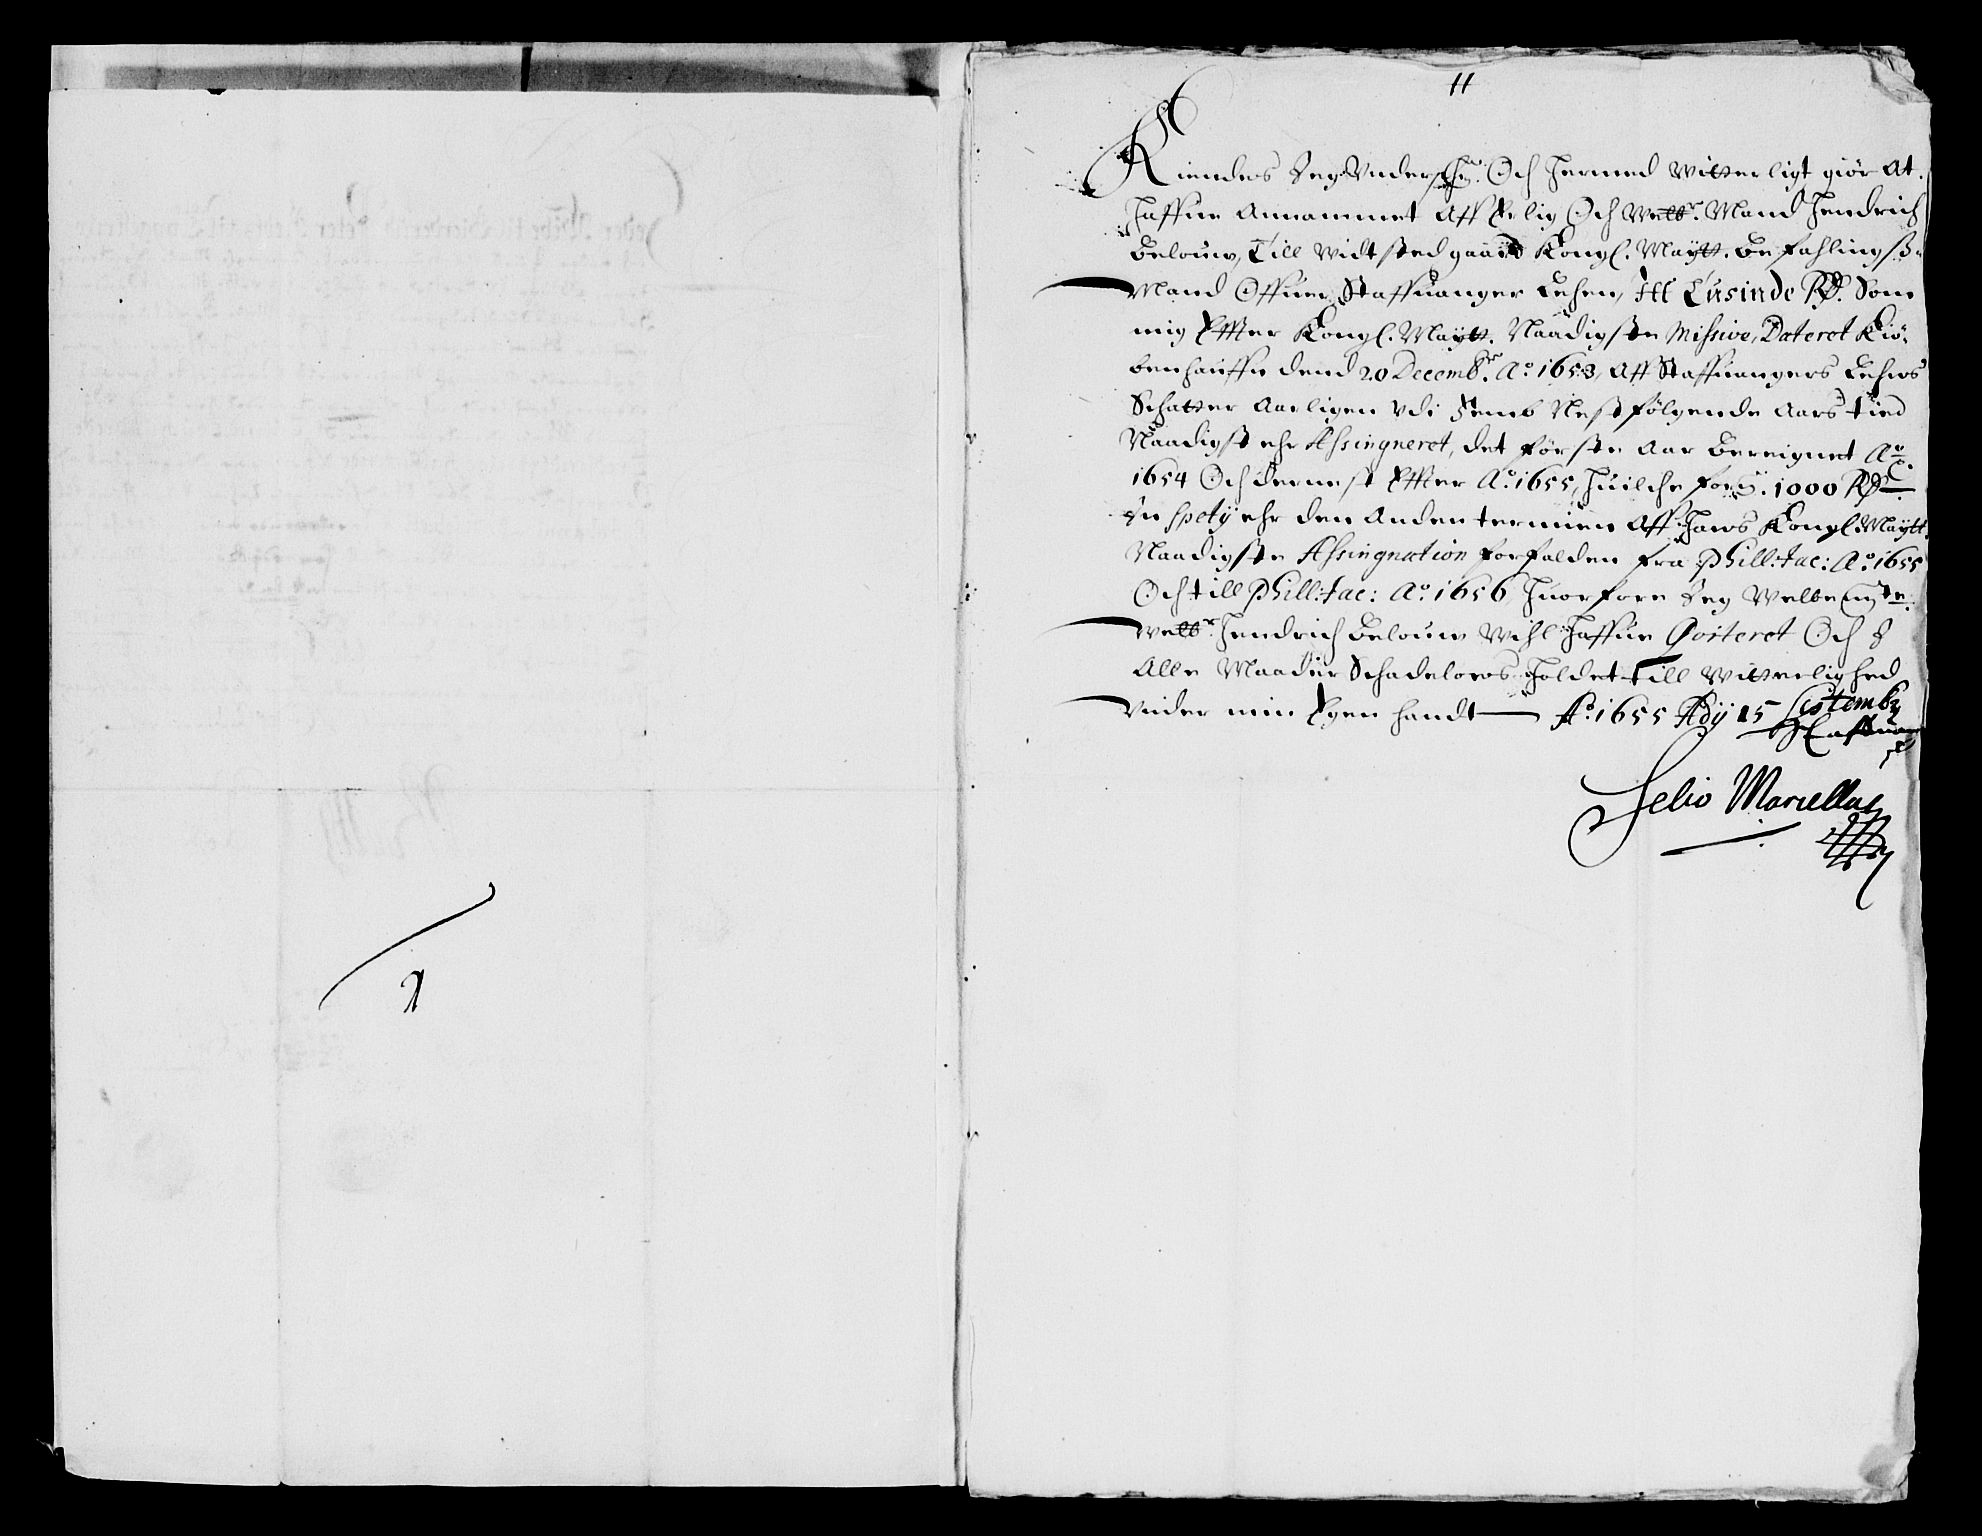 11
Kiendes Jeg Vnderschr: Och hermed Witterligt giör At
haffue Annammet Aff Erlig Och Welb: Mand Hendrich
Belouw, Till Widtstedgaard Kongl. Maÿtt. Befahlingsz
Mand Offuer Staffuanger Lehen, Itt Tusinde Rd. Som
mig Effter Kongl. Maÿtt. Naadigste Missive, Dateret Kiö-
benhauffn dend 20 Decembr. Ao. 1653, Aff Staffuangers Lehns
Schatter Aarligen Vdi Nestfölgende Aars tied
Naadigst ehr Assingneret, det förste Aar Beregnet Ao.
1654 Och dernest Effter Ao. 1655, huilche for: 1000 Rd
In Spety ehr den Anden termien Aff Hans Kongl. Maÿtt.
Naadigste Assingnation forfalden fra Phill: Jac: Ao. 1655
Och till Phill: Jac: Ao. 1656, huorfore Jeg Welbemte
Welb: Hendrich Belouw Wihl haffue Qviteret Och J
Alle Maader Schadelows holdet till Witterlighed
Vnder min Egen handt Ao. 1655 Ady 15 Settembr
Selio Marcellus
1